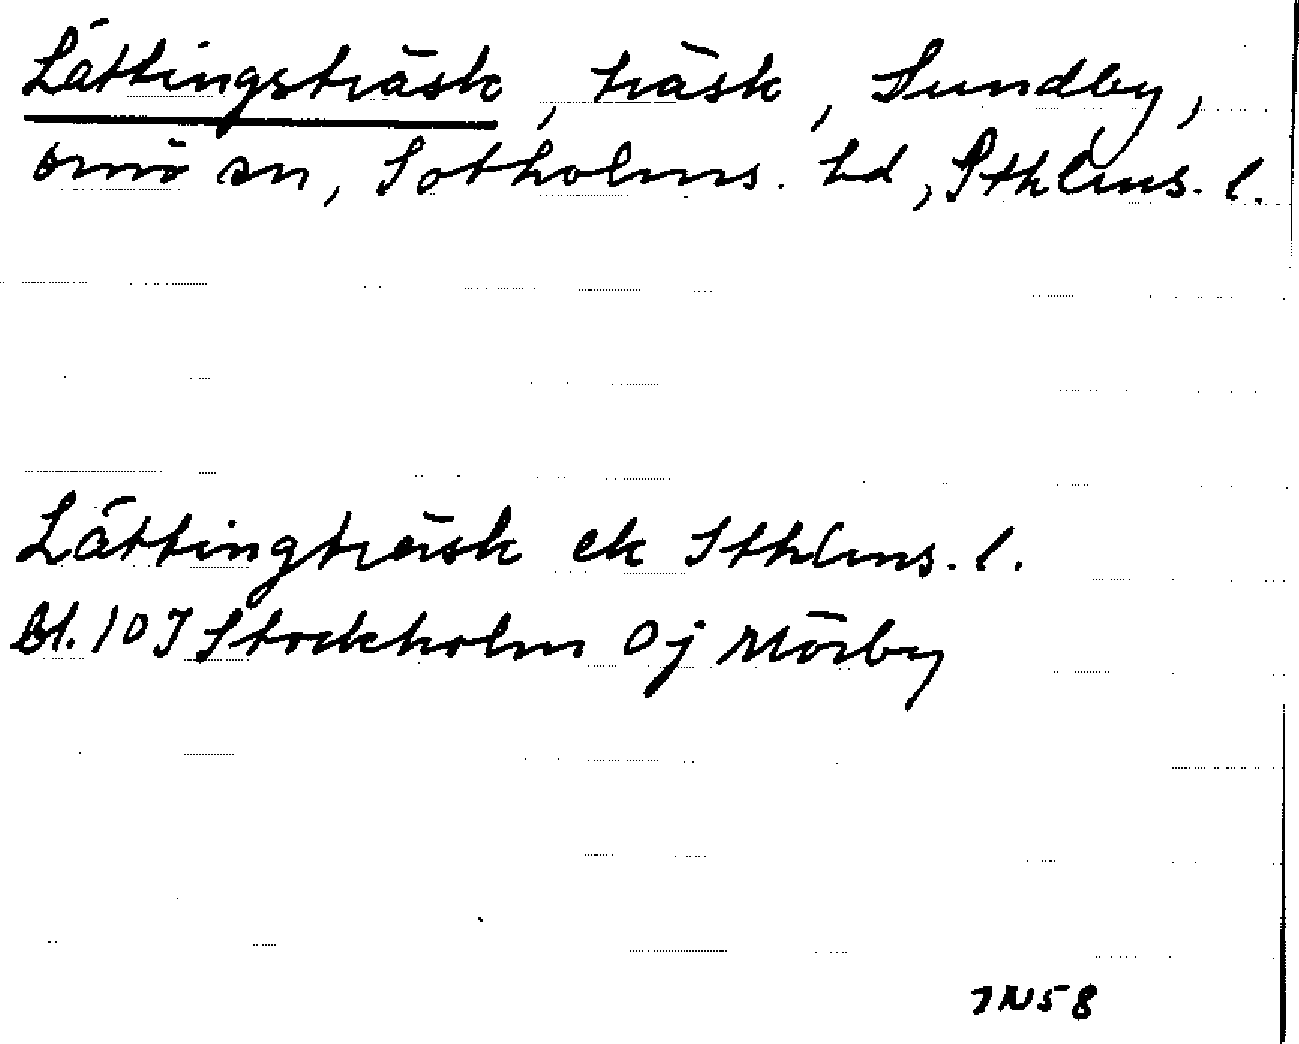 Lättingsträsk, träsk, Sundby,
ornö sn, Sotholms. hd, Sthlms. l.
Lättingträsk ek Sthlms. l.
Bl. 10J Stockholm Oj Mörby
JN58